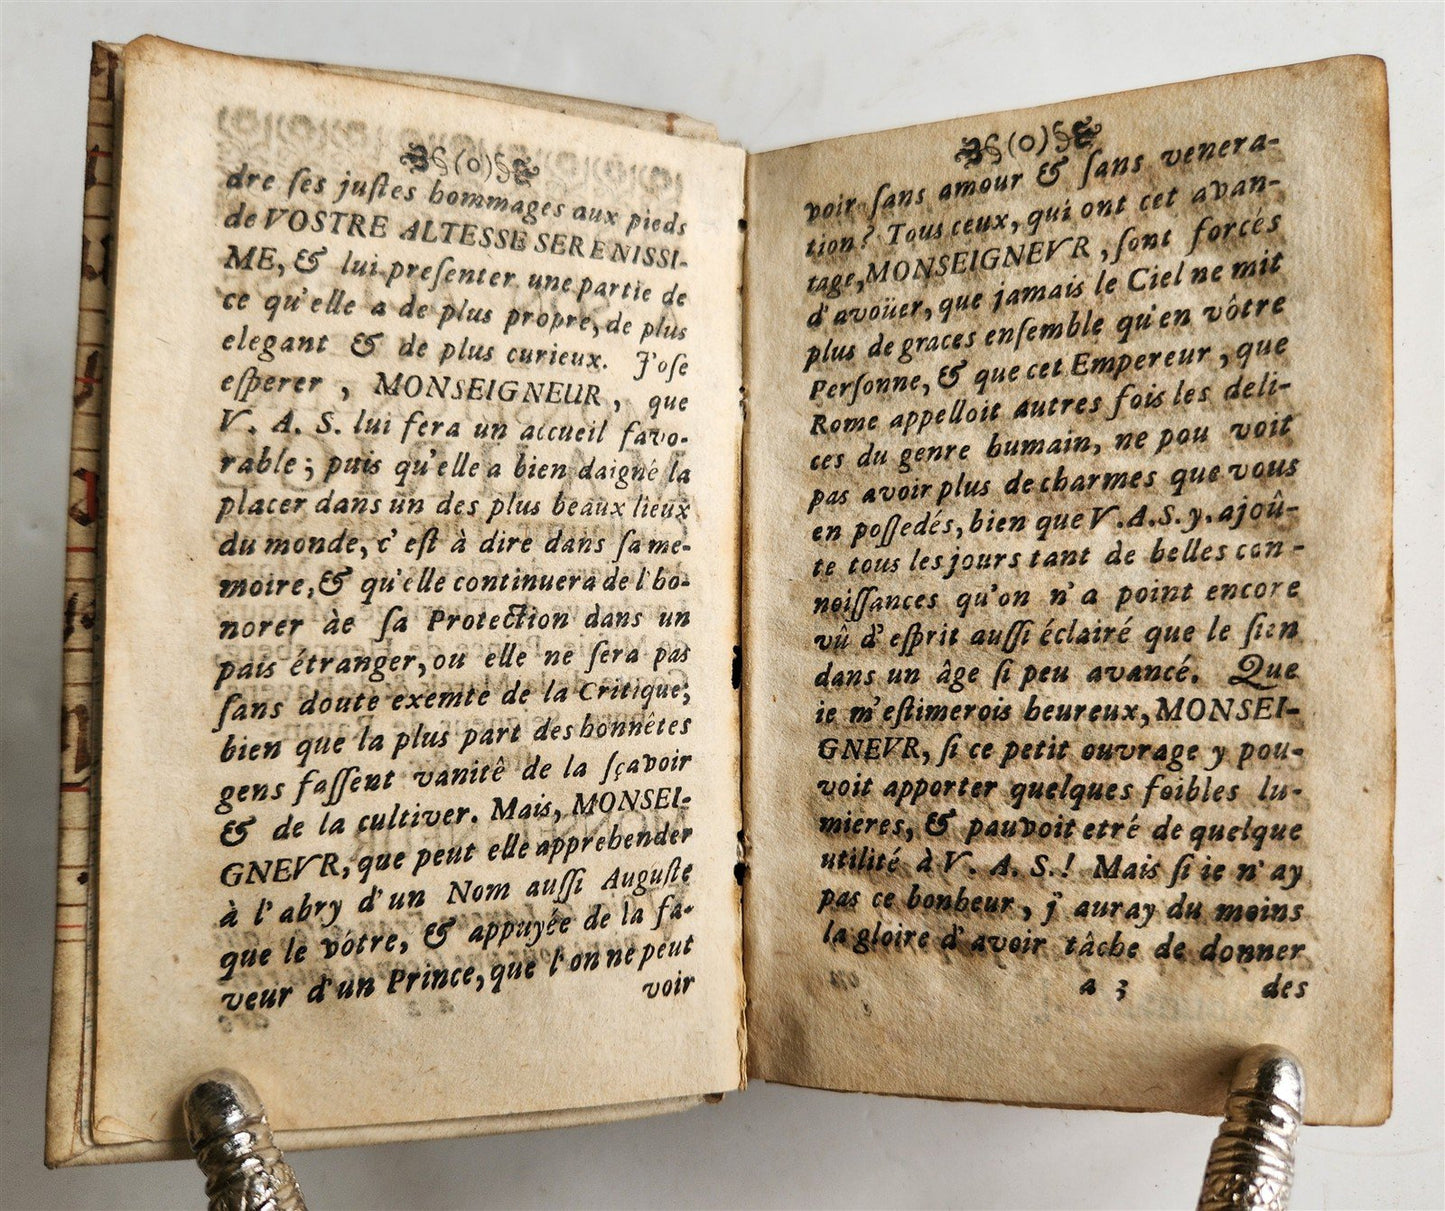 (o)
dre ſes juſtes hommages aux pieds
de VOSTRE ALTESSE SERENISSI-
ME, & lui preſenter une partie de
ce qu'elle a de plus propre, de plus
elegant & de plus curieux. J'oſe
eſperer, MONSEIGNEUR, que
V. A. S. lui fera un accueil favo-
rable; puis qu'elle a bien daigné la
placer dans un des plus beaux lieux
du monde, c'eſt à dire dans ſa me-
moire, & qu'elle continuera de l'ho-
norer àe ſa Protection dans un
pais étranger, ou elle ne ſera pas
ſans doute exemte de la Critique;
bien que la plus part des honnêtes
gens faſſent vanitê de la ſçavoir
& de la cultiver. Mais, MONSEI-
GNEVR, que peut elle apprehender
à l'abry d'un Nom auſſi Auguſte
que le vôtre, & appuyée de la fa-
veur d'un Prince, que l'on ne peut
voir
(o)
voir ſans amour & ſans venera-
tion? Tous ceux, qui ont cet avan-
tage, MONSEIGNEVR, ſont forcés
d'avoüer, que jamais le Ciel ne mit
plus de graces enſemble qu'en vôtre
Perſonne, & que cet Empereur, que
Rome appelloit autres fois les deli-
ces du genre humain, ne pou voit
pas avoir plus de charmes que vous
en poſſedés, bien que V. A. S. y. ajoû-
te tous les jours tant de belles con-
noiſſances qu'on n'a point encore
vû d'eſprit auſſi éclairé que le ſien
dans un âge ſi peu avancé. Que
ie m'eſtimerois heureux, MONSEI-
GNEVR, ſi ce petit ouvrage y pou-
voit apporter quelques foibles lu-
mieres, & pauvoit etré de quelque
utilité à V. A. S.! Mais ſi ie n'ay
pas ce bonheur, j'auray du moins
la gloire d'avoir tâche de donner
a 3 des